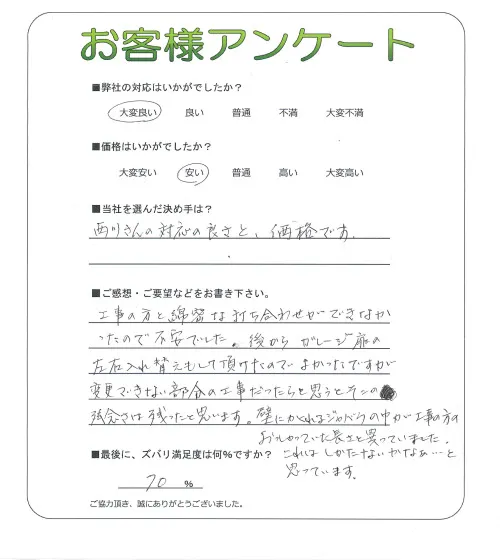 お客様アンケート
■弊社の対応はいかがでしたか?
大変良い 良い 普通 不満 大変不満
■価格はいかがでしたか?
大変安い 安い 普通 高い 大変高い
■当社を選んだ決め手は?
西川さんの対応の良さと、価格です。
■ご感想・ご要望などをお書き下さい。
工事の方と綿密な打ち合わせができなか
ったので不安でした。後からガレージ扉の
左右入れ替えもして頂けたのでよかったですが
変更できない部分の工事だったらと思うとそこの
残念さは残ったと思います。壁にかくれるジャバラの中が工事の方の
おしゃっていた長さと異っていました。
これはしかたないかなぁ…と
思っています。
■最後に、ズバリ満足度は何%ですか?
70 %
ご協力頂き、誠にありがとうございました。